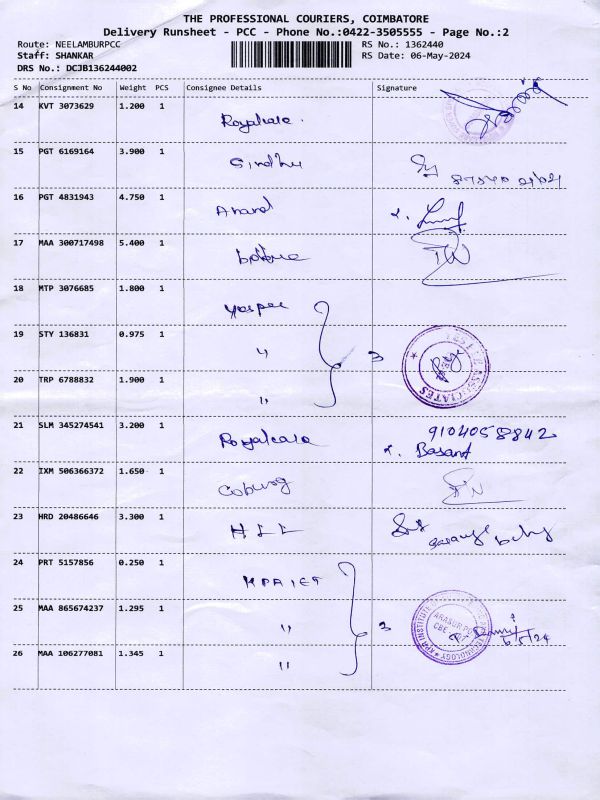 THE PROFESSIONAL COURIERS, COIMBATORE
Delivery Runsheet - PCC - Phone No.:0422-3505555 - Page No.:2
Route: NEELAMBURPCC RS No.: 1362440
Staff: SHANKAR RS Date: 06-May-2024
DRS No.: DCJB136244002
S No Consignment No Weight PCS Consignee Details Signature
14 KVT 3073629 1.200 1 Royalcare.
15 PGT 6169164 3.900 1 Sindhu
16 PGT 4831943 4.750 1 Anand
17 MAA 300717498 5.400 1
18 MTP 3076685 1.800 1
19 STY 136831 0.975 1 " 3 ASSOCIATES
20 TRP 6788832 1.900 1 "
21 SLM 345274541 3.200 1 Royalcare 9104058842
Basant
22 IXM 506366372 1.650 1 Coburg
23 HRD 20486646 3.300 1 HLL
24 PRT 5157856 0.250 1 KPRIET
25 MAA 865674237 1.295 1 " 3 KPR INSTITUTE TECHNOLOGY ARASUR PO CBE 6/5/24
26 MAA 106277081 1.345 1 "